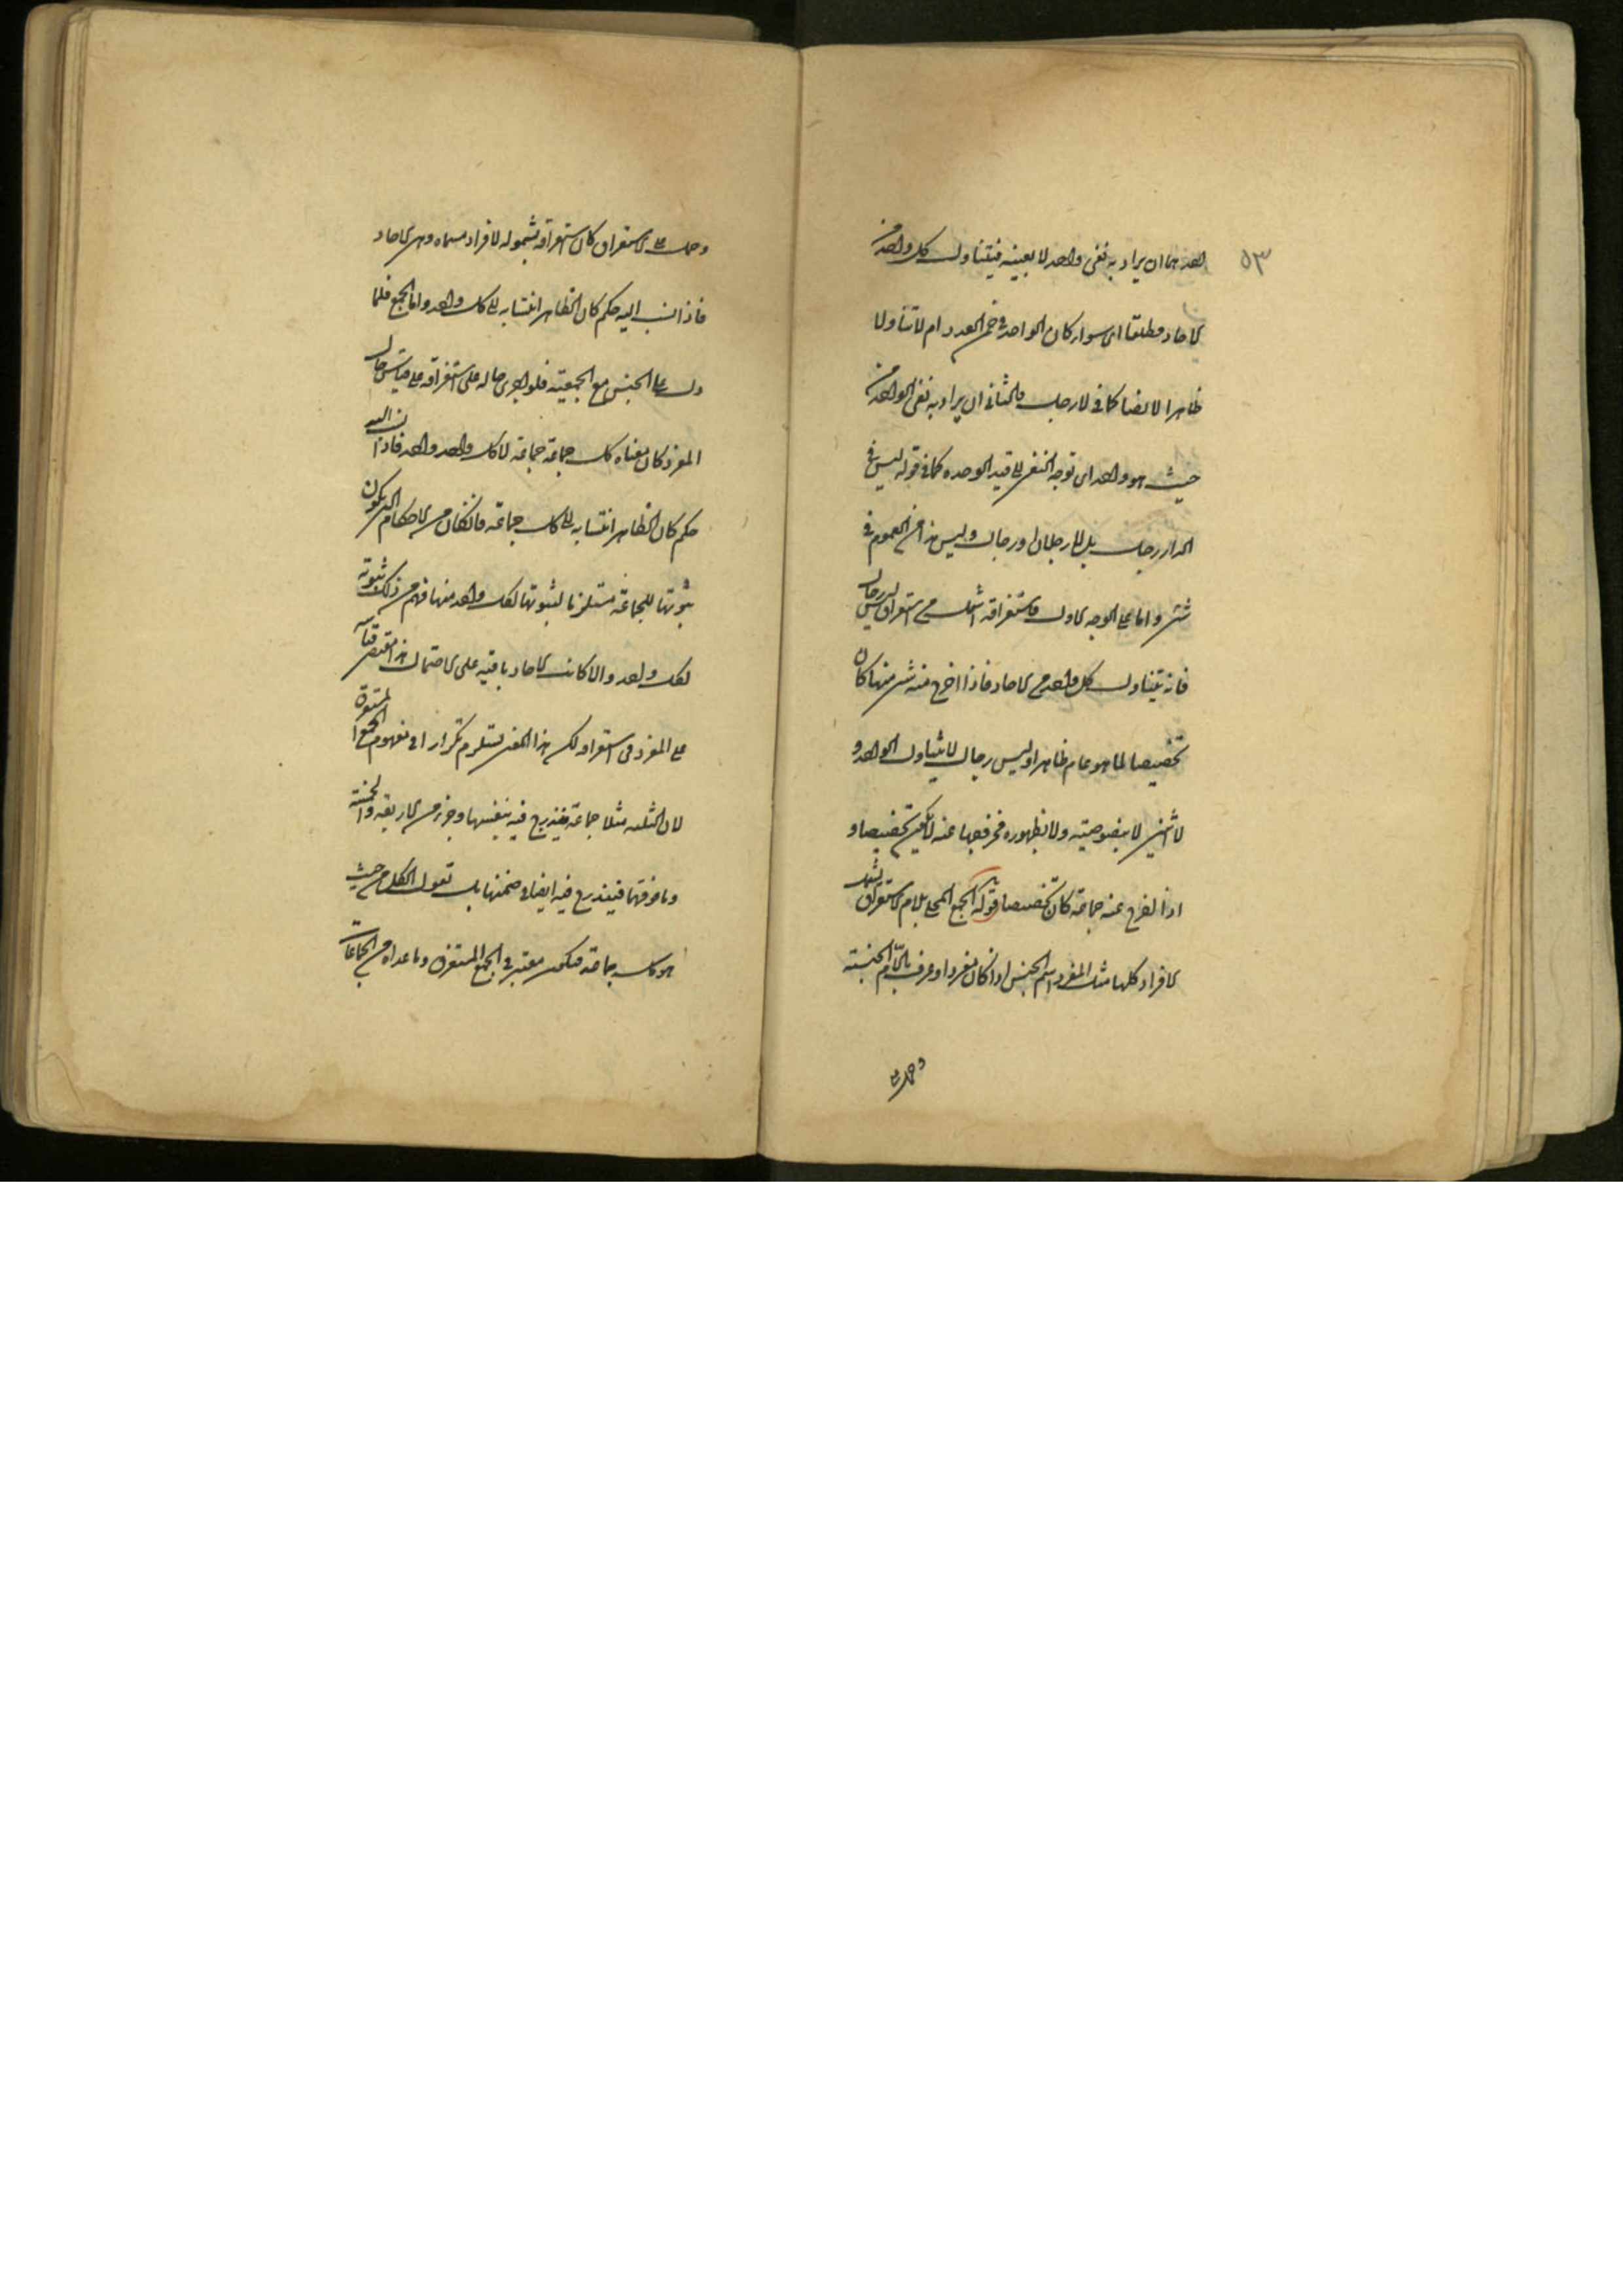 ٥٣
احدهما ان يراد به نفى واحد لا بعينه فيتناول كل واحد من
الاحاد مطلقا اى سواء كان الواحد فى ضمن العدد ام لا تناولا
ظاهرا لا نصا كما فى لا رجل والثانى ان يراد به نفى الواحد من
حيث هو واحد اى توجه النفى الى قيد الوحده كما فى قوله ليس فى
الدار رجل بل رجلان او رجال وليس هذا من العموم فى
شئ واما على الوجه الاول فاستغراقه اشمل من استغراق ليس رجال
فانه يتناول كل واحد من الاحاد فاذا اخرج منه شئ منها كان
تخصيصا لما هو عام ظاهرا وليس رجال لا يتناول الواحد و
الاثنين لا بنصوصيته ولا بظهوره فخروجهما عنه لا يكون تخصيصا و
اذا اخرج عنه جماعة كان تخصيصا قوله الجمع المحلى بلام الاستغراق يشمل
الافراد كلها مثل المفرد اسم الجنس اذا كان مفردا وعرف باللام الجنسية
وحمل على
وحمل على الاستغراق كان استغراقه بشموله لافراد مسماه وهى الاحاد
فاذا نسب اليه حكم كان الظاهر انتسابه الى كل واحد واما الجمع فلما
دل على الجنس مع الجمعية فلو اجرى حاله على استغراقه على قياس حال
المفرد كان معناه كل جماعة جماعة لا كل واحد واحد فاذا نسب اليه
حكم كان الظاهر انتسابه الى كل جماعة فان كان من الاحكام التى يكون
ثبوتها للجماعة مستلزما لثبوتها لكل واحد منها فهم من ذلك ثبوته
لكل واحد والا كانت الاحاد باقية على الاحتمال هذا مقتضى قياسه
على المفرد فى استغراقه لكن هذا المعنى يستلزم تكرارا فى مفهوم الجمع المستغرق
لان الثلثه مثلا جماعة فيندرج فيه بنفسها وجزء من الاربعة والخمسة
وما فوقهما فيندرج فيه ايضا فى ضمنها بل نقول الكل من حيث
هو كل جماعة فيكون معتبرا فى الجمع المستغرق وما عداه من الجماعات